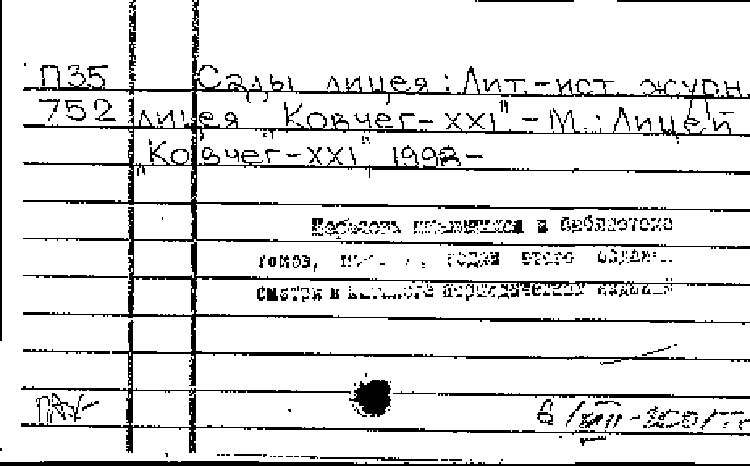 П35 Сады лицея: Лит.-ист. журн.
752 лицея "Ковчег-XXI" - М.: Лицей
"Ковчег-XXI" 1998-
имеющихся в библиотеке
томов, годов этого издания
смотри в каталоге периодических изданий